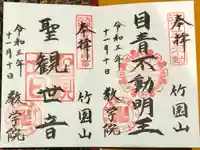 奉拝
竹園山
目青不動明王
令和三年
十一月十日
教学院
奉拝
竹園山
聖観世音
令和三年
十一月十日
教学院